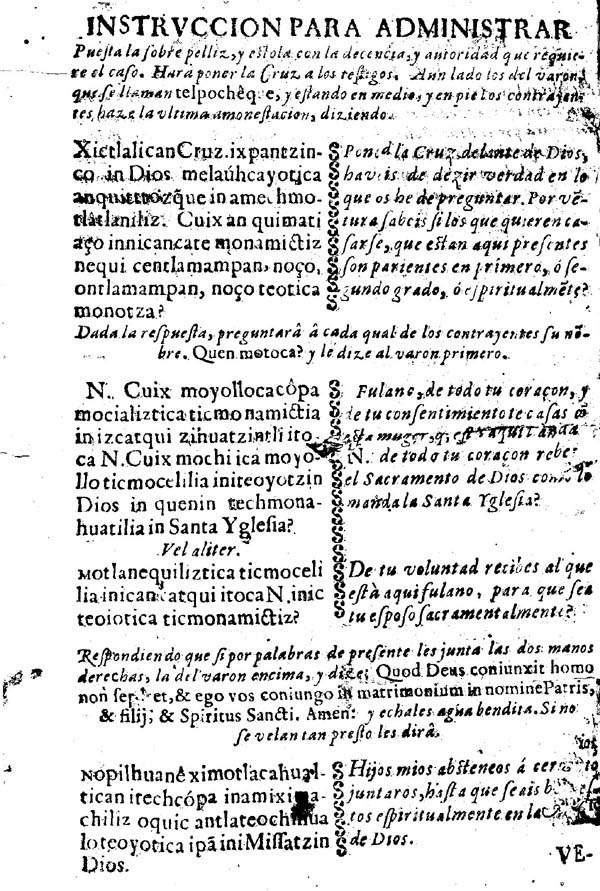 INSTRVCCION PARA ADMINISTRAR
Puesta la sobre pelliz, y estola con la decencia, y autoridad que requie-
re el caso. Hara poner la Cruz a los testigos. A un lado los del varon,
que se llaman telpochêque, y estando en medio, y en pie los contrayen-
tes, haze la vltima amonestacion, diziendo.
Xictlalican Cruz. ixpantzin-
co in Dios melaúhcayotica
anquittozq̃ue in amechmo-
tlatlaniliz. Cuix an quimati
aço innican cate monamictiz
nequi centlamampan, noço,
ontlamampan, noço teotica
monotza?
Poned la Cruz delante de Dios,
haveis de dezir verdad en lo
que os he de preguntar. Por vẽ-
tura sabeis si los que quieren ca-
sarse, que estan aqui presentes
son parientes en primero, ó se-
gundo grado, ó espiritualmẽte?
Dada la respuesta, preguntarâ â cada qual de los contrayentes su nõ-
bre. Quen motoca? y le dize al varon primero.
N. Cuix moyollocacôpa
mocializtica ticmonamictia
in izcatqui zihuatzintli ito-
ca N. Cuix mochi ica moyo-
llo ticmocelilia initeoyotzin
Dios in quenin techmona-
huatilia in Santa Yglesia?
Fulano, de todo tu coraçon, y
de tu consentimiento te casas cõ
esta muger, q̃ està aqui
N. de todo tu coraçon rebe?
el Sacramento de Dios como lo
manda la Santa Yglesia?
Vel aliter.
Motlanequiliztica ticmoceli
lia inican catqui itoca N. inic
teoiotica ticmonamictiz?
De tu voluntad recibes al que
està aqui fulano, para que sea
tu esposo sacramentalmente?
Respondiendo que si por palabras de presente les junta las dos manos
derechas, la del varon encima, y dize: Quod Deus coniunxit homo
non separet, & ego vos coniungo in matrimonium in nomine Patris,
& filij; & Spiritus Sancti. Amen: y echales agua bendita. Si no
se velan tan presto les dirâ.
Nopilhuanê ximotlacahual-
tican itechcópa inamixima-
chiliz oquic antlateochihua
lo teoyotica ipã ini Missatzin
Dios.
Hijos mios absteneos á
juntaros, hasta que seais
tos espiritualmente en la
de Dios.
VE-